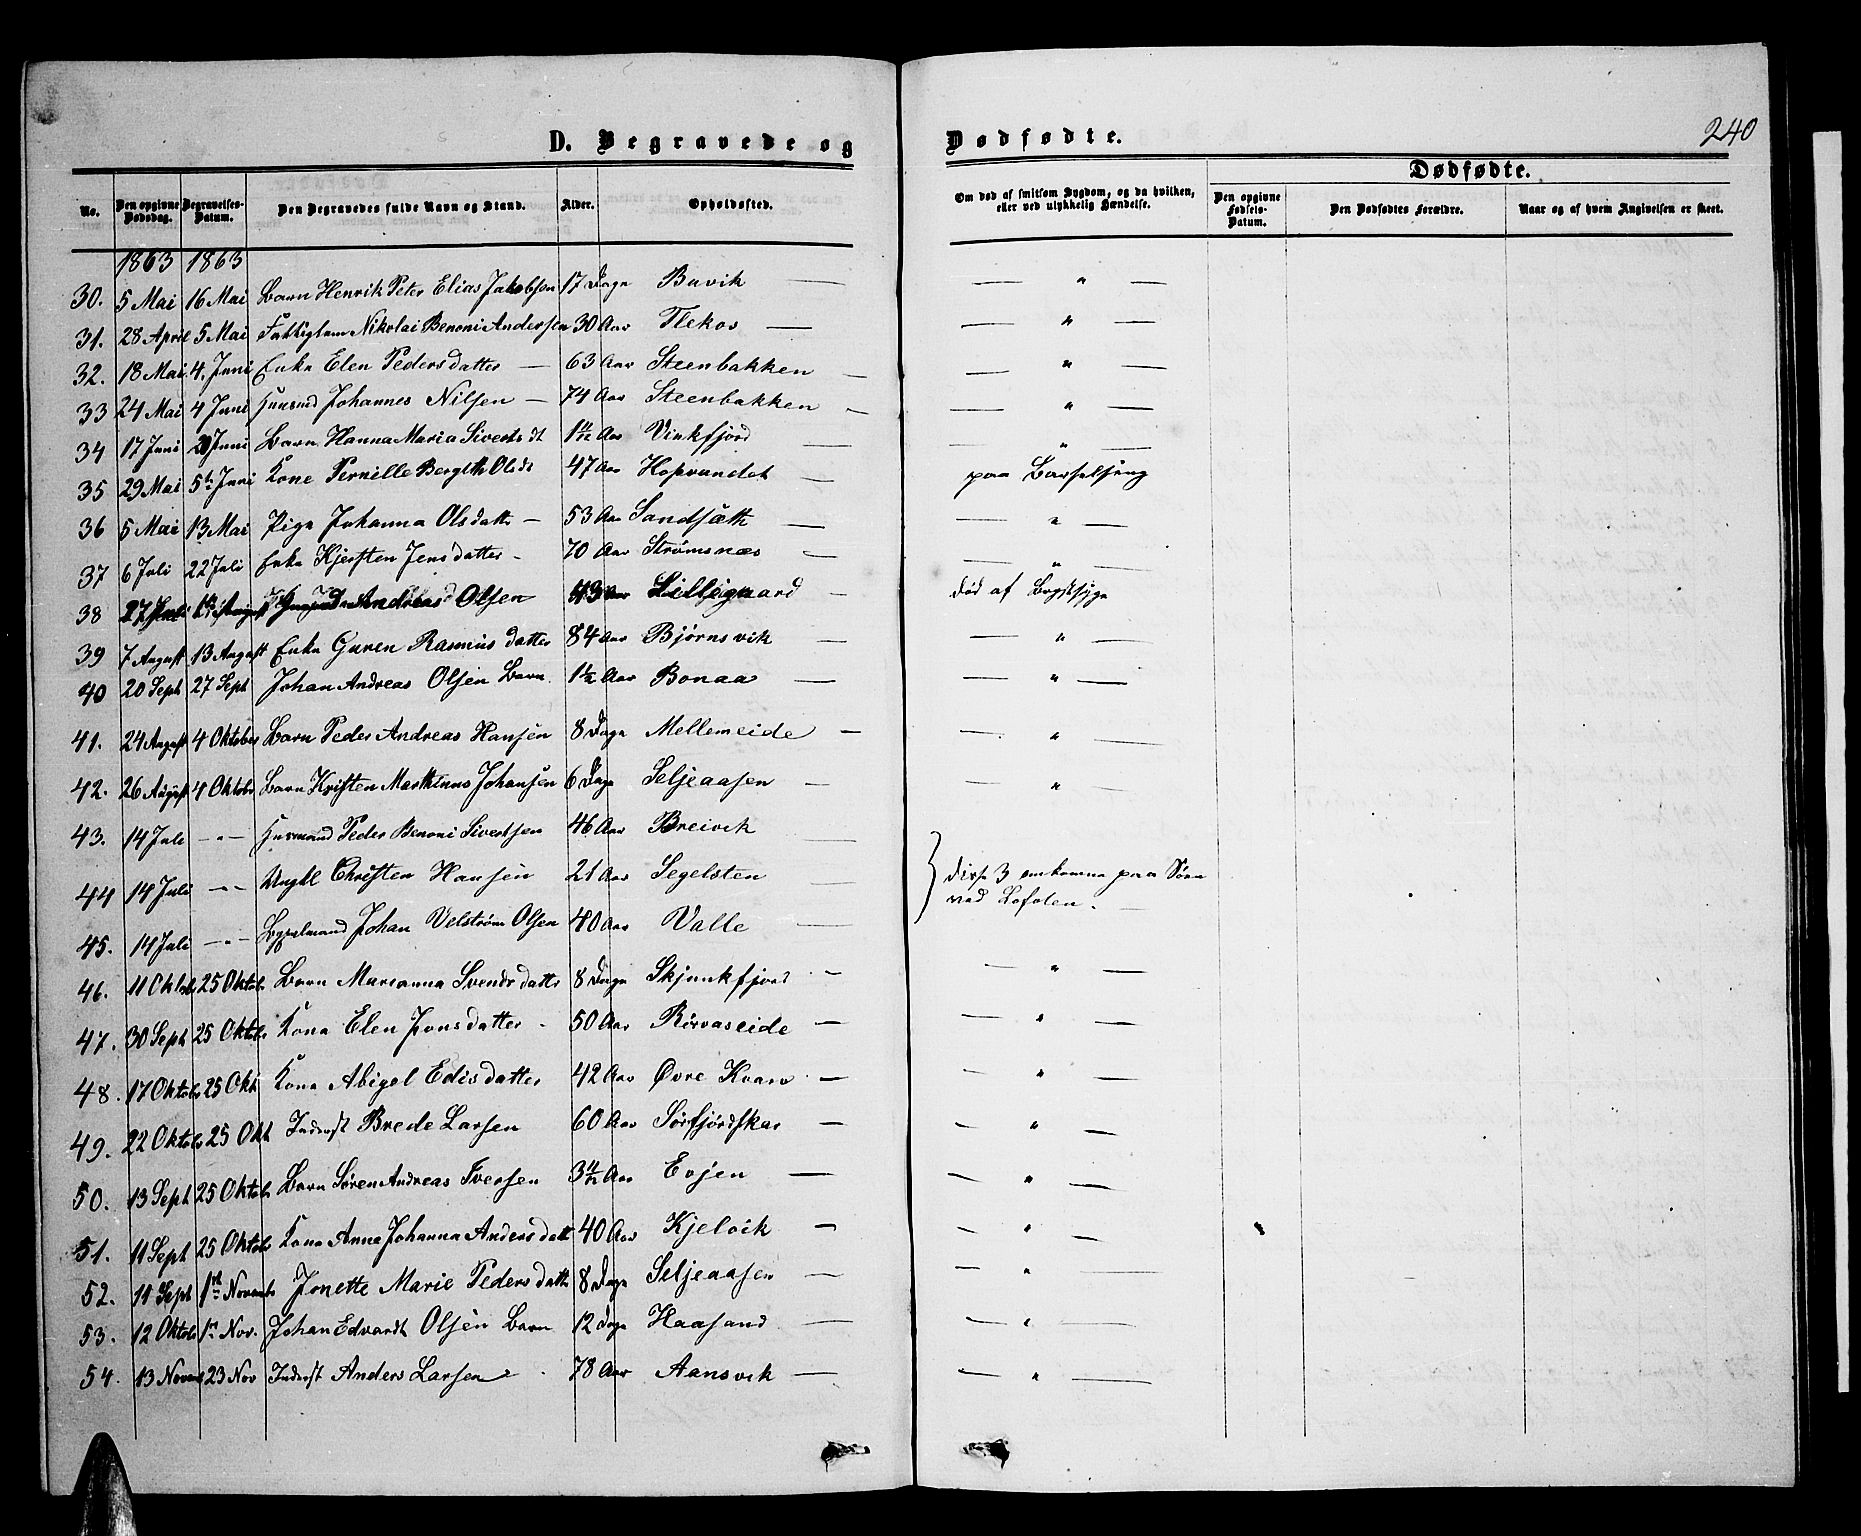 240
D. Begravede og Dødfødte.
Dødfødte.
No. Den opgivne Dødsdag. Begravelses-Datum. Den Begravedes fulde Navn og Stand. Alder. Opholdssted. Om død af smitsom Sygdom, og da hvilken, eller ved ulykkelig Hændelse. Den opgivne Fødsels-Datum. Den Dødfødtes Forældre. Naar og af hvem Angivelsen er skeet.
1863 1863
30. 5 Mai 16 Mai Barn Henrik Peter Elias Jakobsen 17 Dage Buvik — — " —
31. 28 April 5 Mai Fattiglem Nikolai Benoni Andersen 30 Aar Flekos — — " —
32. 18 Mai 4. Juni Enke Elen Pedersdatter — 63 Aar Steenbakken — — " —
33 24 Mai 4 Juni Huusmd Johannes Nilsen — 74 Aar Steenbakken — — " —
34 17 Juni Juni Barn Hanna Maria Siverts dt Aar Vinkfjord — — " —
35 29 Mai 5te Juni Kone Pernille Olsdt 47 Aar Hopvandet — paa Barselseng
36 5 Mai 13 Mai Pige Johanna Olsdatter — 53 Aar Sandsæth — — " —
37 6 Juli 22 Juli Enke Kjersten Jensdatter - 70 Aar Strømsnæs — — " —
38 27 Juli August Andreas Olsen 43 Aar Lillegaard — død af Brystsyge
39 7 August 13 August Enke Guren Rasmusdatter 84 Aar Bjørnsvik — — " —
40 20 Sept 27 Sept Johan Andreas Olsen Barn. 1½ Aar Bonaa — — " —
41. 24 August 4 Oktober Barn Peder Andreas Hansen 8 Dage Mellemeide — — " —
42. 26 August 4 Oktober Barn Kristen Marthinus Johansen 6 Dage Seljeaasen — — " —
43. 14 Juli — " — Husmand Peder Benoni Sivertsen 46 Aar Breivik —
44 14 Juli — " — Ungkl Christen Hansen 21 Aar Segelsten — } disse 3 omkomne paa Søen
ved Lofoten. —
45. 14 Juli — " — Johan Velstrøm Olsen 40 Aar Valle —
46. 11 Oktob 25 Oktob Barn Marianna Svendsdatter 8 Dage Skjunkfjord — — " —
47. 30 Sept 25 Oktob Kone Elen Jonsdatter - 50 Aar Rörvaseide — — " —
48. 17 Oktob 25 Okt Kone Abigel Edisdatter 42 Aar Øvre Kvarv — — " —
49. 22 Oktob 25 Okt Inderst Brede Larsen 60 Aar Sørfjordskar — — " —
50. 13 Sept 25 Oktob Barn Søren Andreas Iversen Aar Evjen — — " —
51. 11 Sept 25 Oktob Kone Anna Johanna Andersdatt 40 Aar Kjelvik — — " —
52. 11 Sept 1ste Novemb Jonette Marie Pedersdatter 8 Dage Seljeaasen — — " —
53. 12 Oktob 1ste Nov. Johan Edvardt Olsen Barn 12 Dage Haasand — — " —
54. 13 Novemb 23 Nov Inderst Anders Larsen - 78 Aar Aansvik — — " —